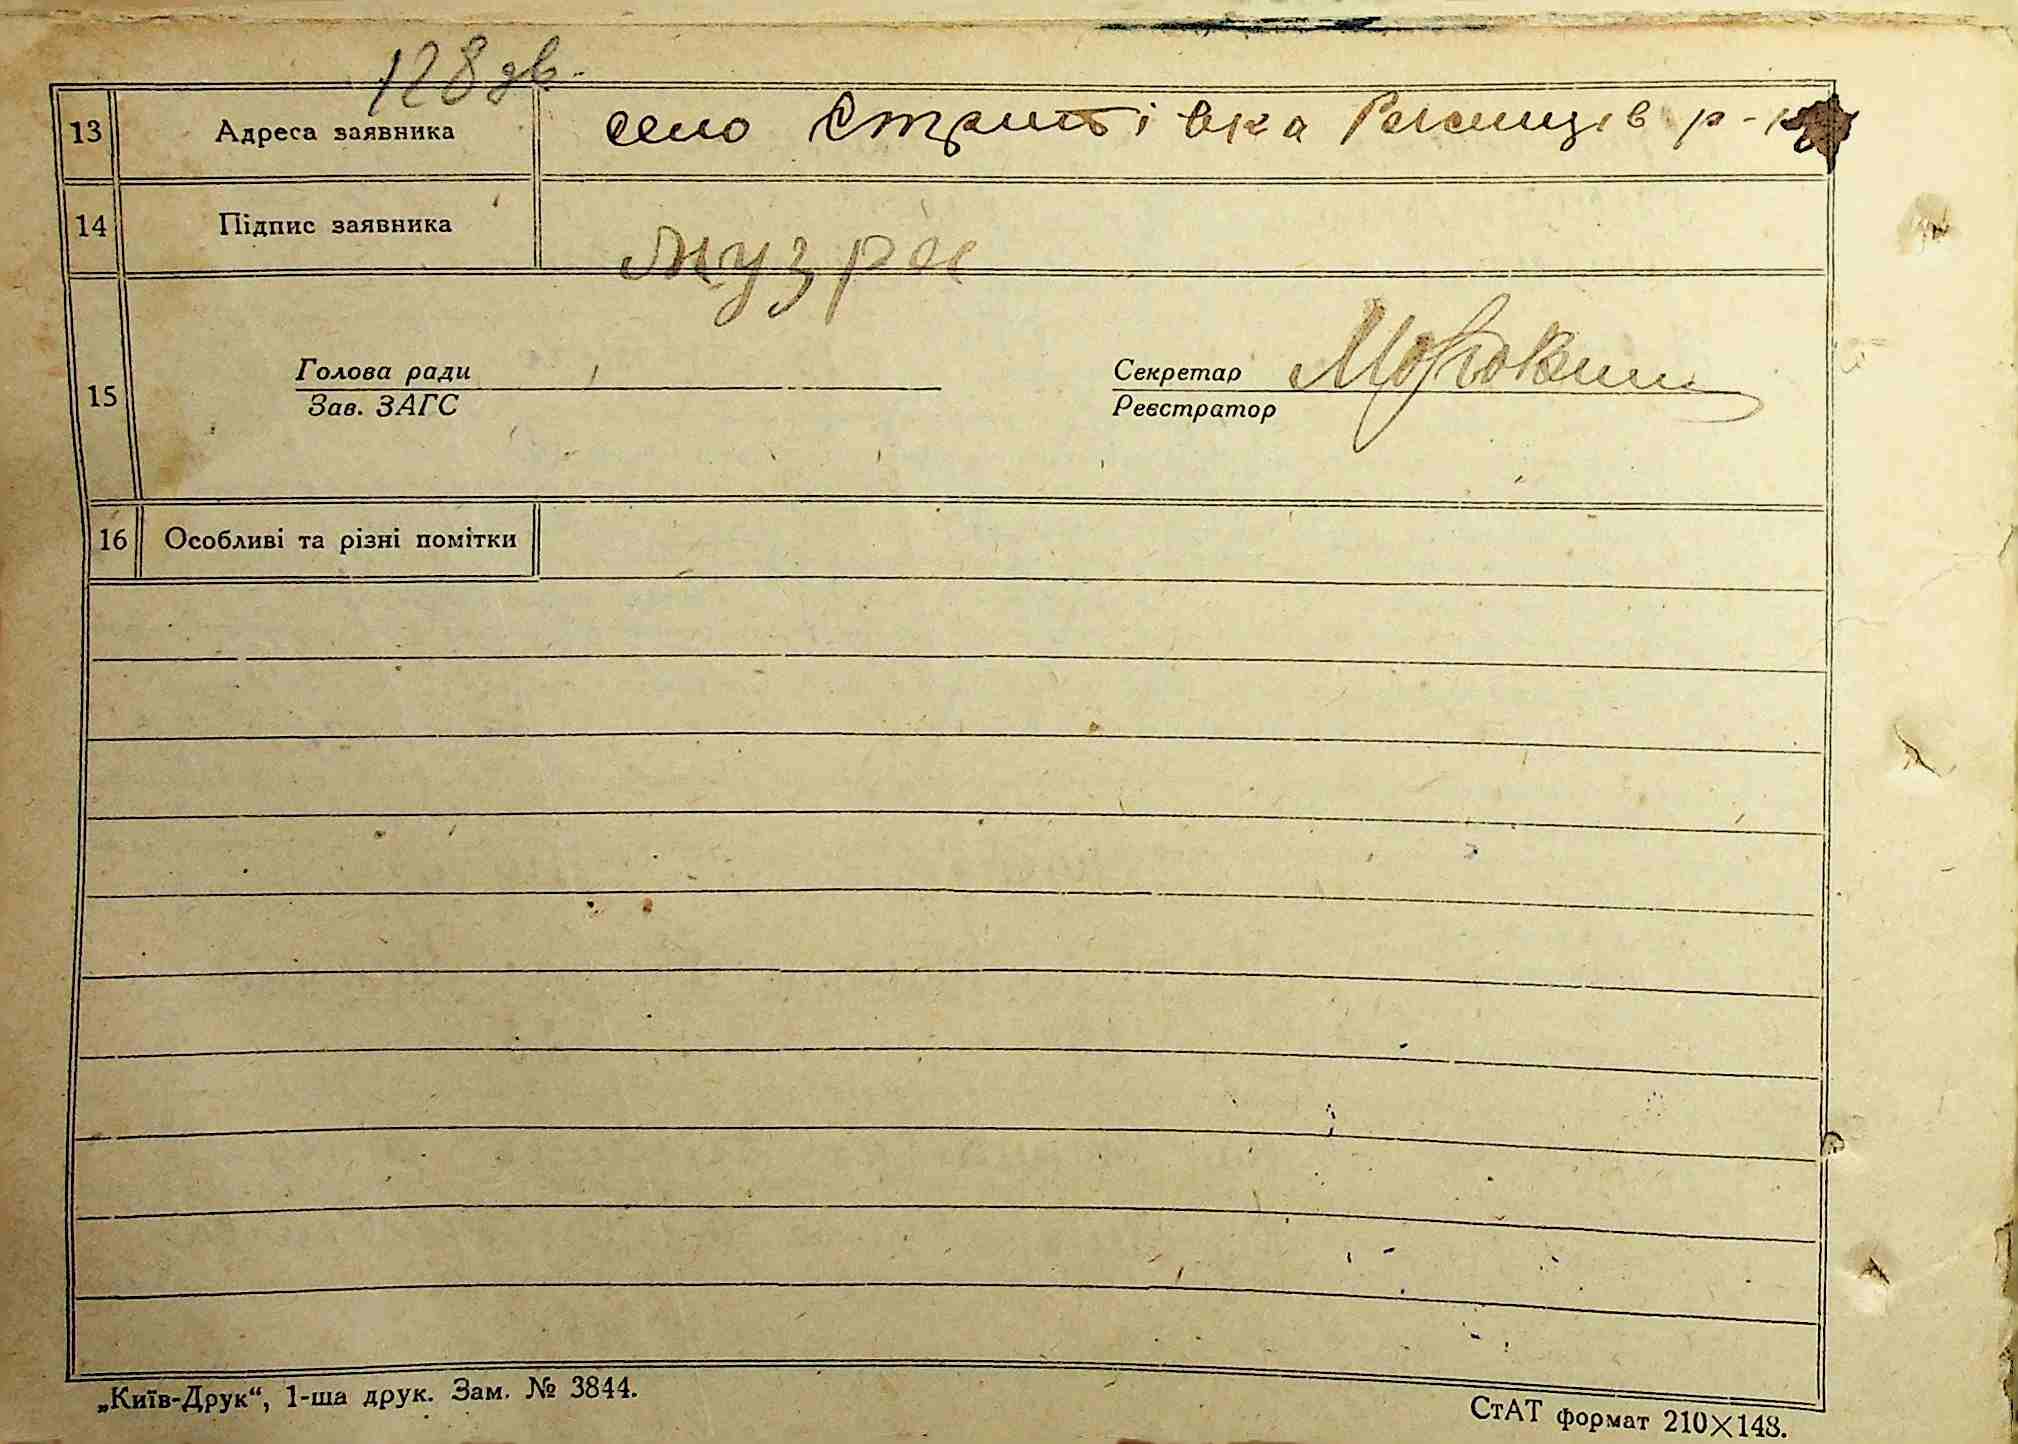 128 дв.
13 Адреса заявника село р-н
14 Підпис заявника Музра
Голова ради Секретар
15
Зав. ЗАГС Реєстратор
16 Особливі та різні помітки
„Київ-Друк“, 1-ша друк. Зам. № 3844.
СтАТ формат 210×148.